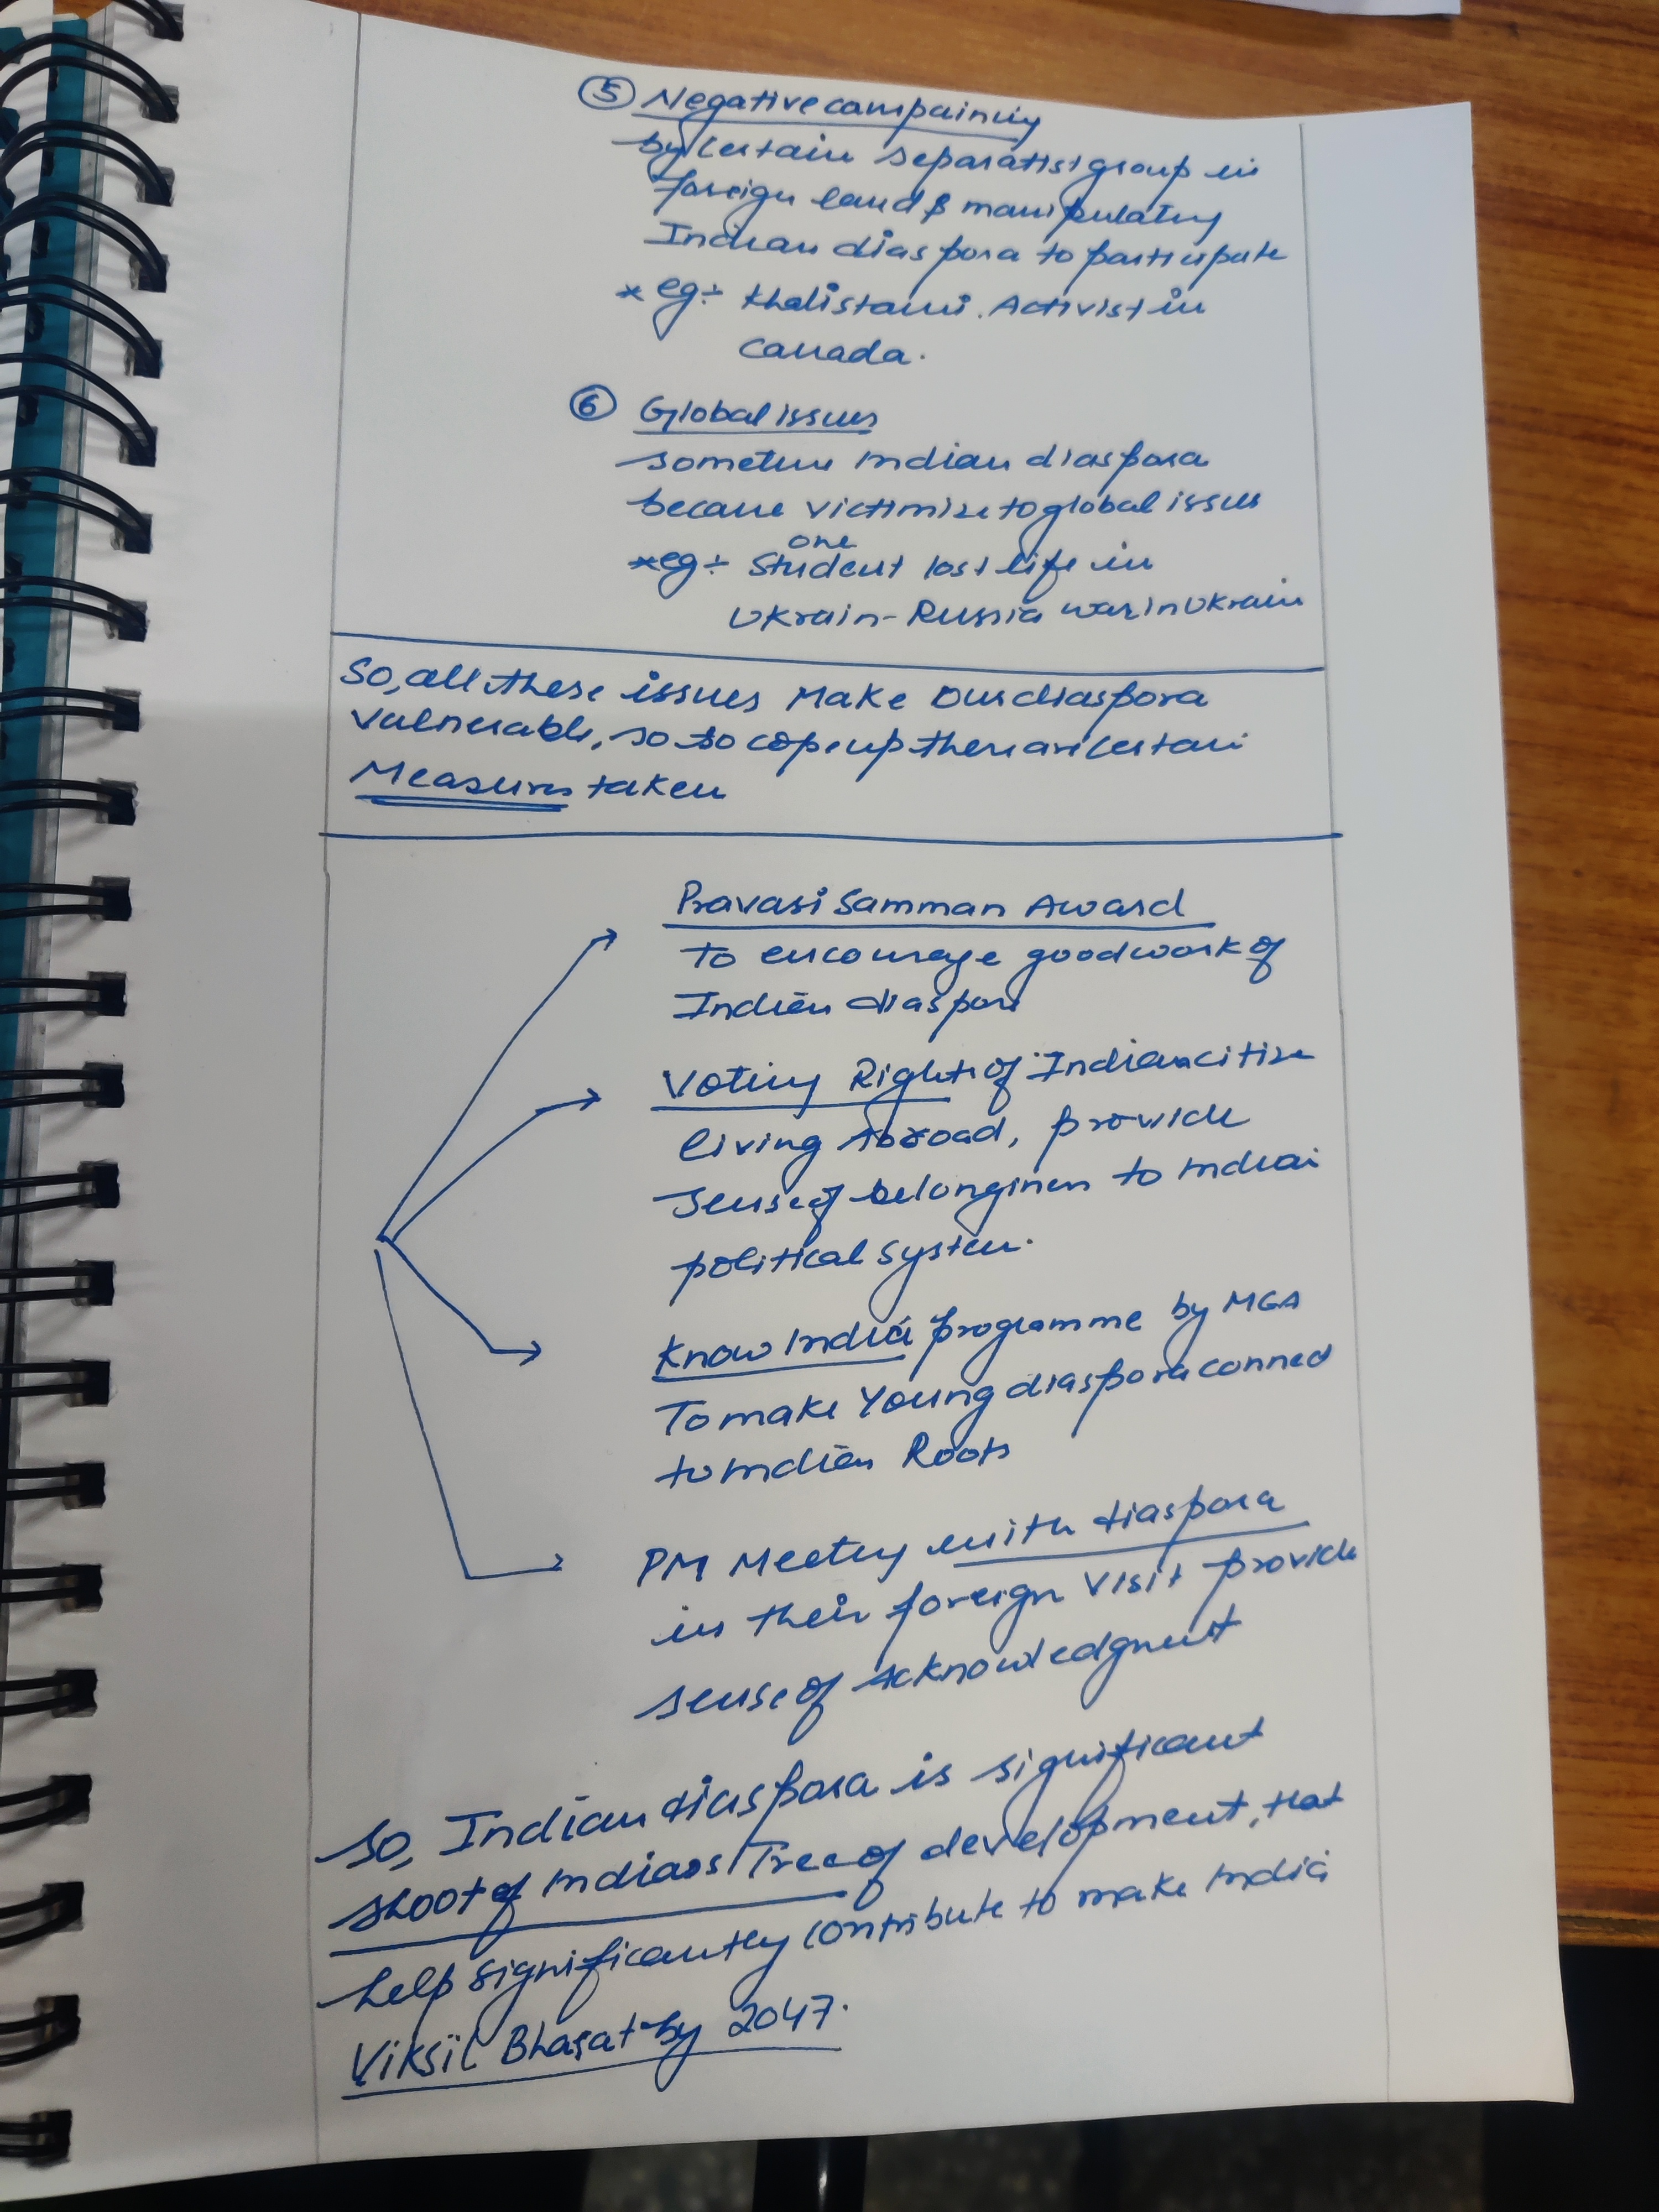 5 Negative campaining
by certain separatist group in
foreign land & manipulating
Indian diaspora to participate
* eg:- Khalistani Activist in
Canada.
6 Global issues
sometime Indian diaspora
became victimize to global issues
one
* eg:- Student lost life in
Ukrain-Russia war in Ukrain
So, all these issues Make Our diaspora
vulnerable, so to cope up there are certain
Measures taken
Pravasi Samman Award
To encourage good work of
Indian diaspora
Voting Rights of Indian citizen
living Abroad, provide
sense of belonginess to Indian
political system.
Know India programme by MEA
To make Young diaspora connect
to Indian Roots
PM Meeting with diaspora
in their foreign visit provide
sense of acknowledgment
So, Indian diaspora is significant
shoot of Indias Tree of development, that
help significantly contribute to make India
Viksit Bharat by 2047.